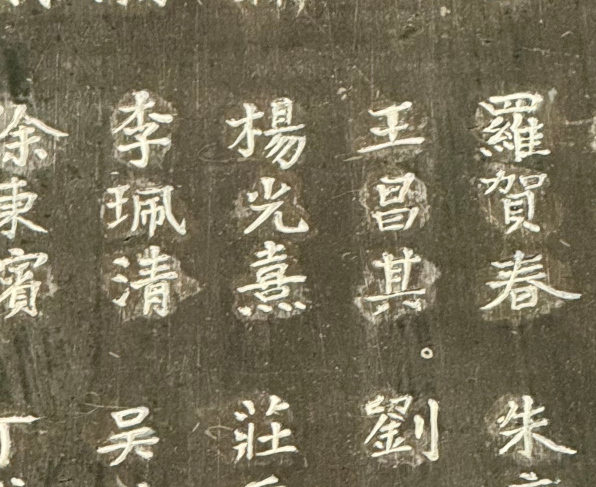 羅賀春
王昌其
楊光熹
李珮清
余東賓
朱
劉
莊
吴
丁